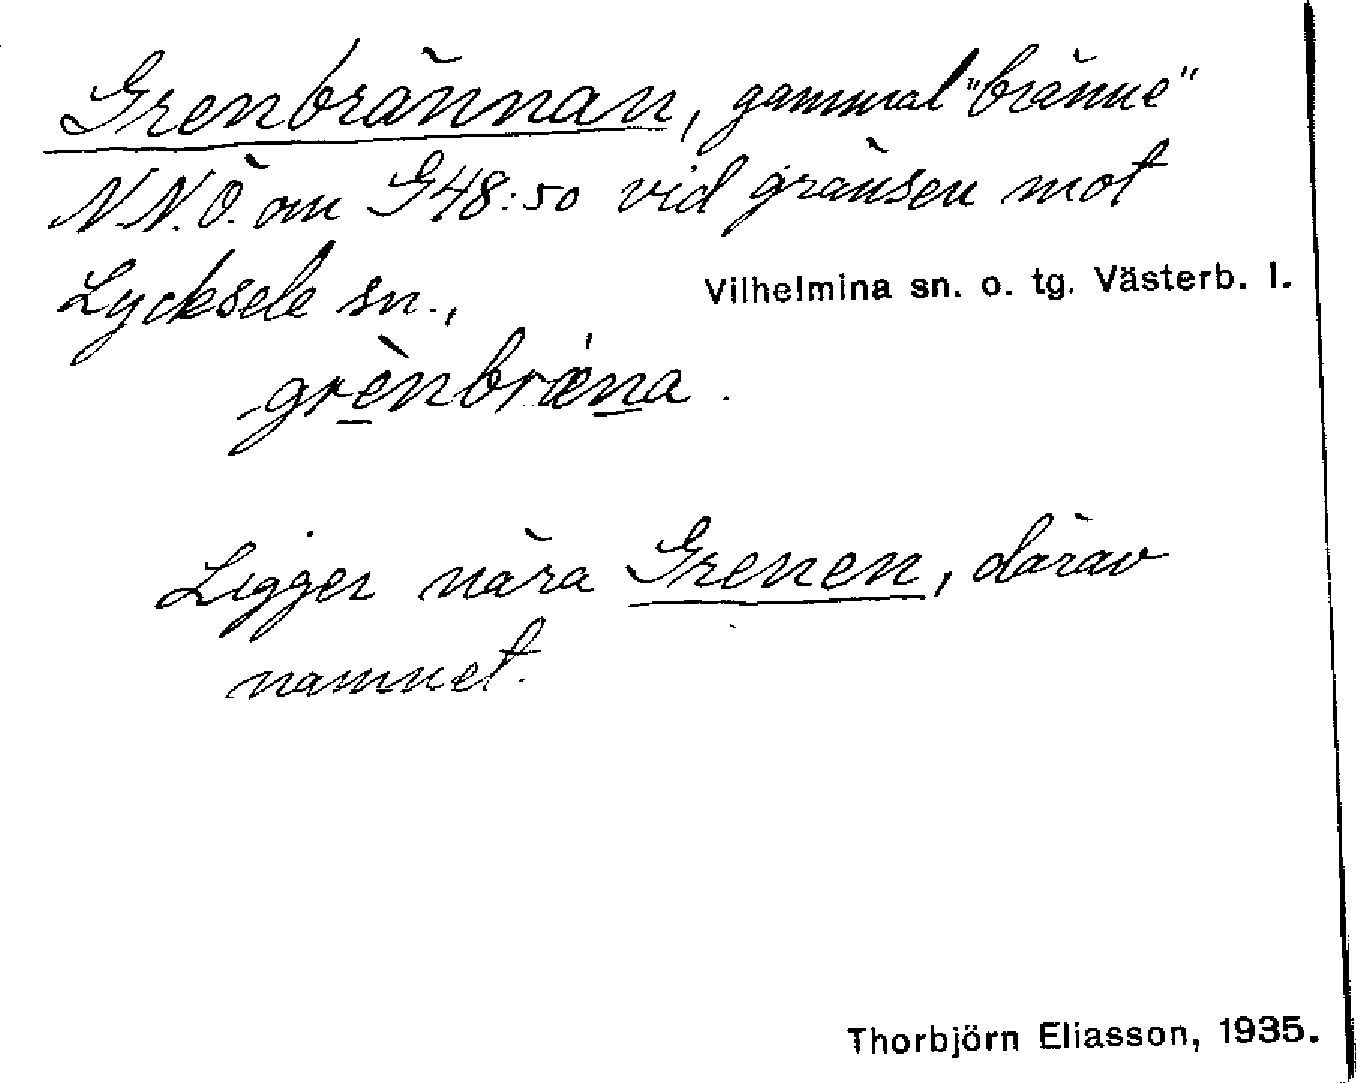 Grenbrännan, gammal "bränne"
N.N.Ö. om G48:50 vid gränsen mot
Lycksele sn.,
Vilhelmina sn. o. tg. Västerb. l.
grènbræ'na.
Ligger nära Grenen, därav
namnet.
Thorbjörn Eliasson, 1935.